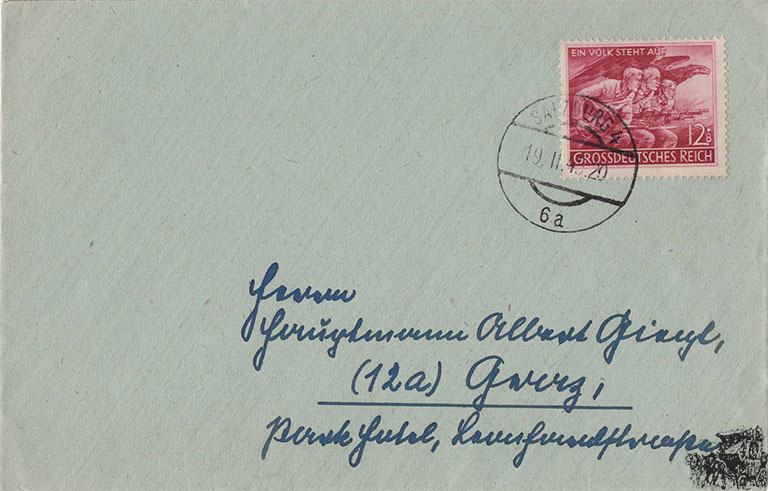 EIN VOLK STEHT AUF
12+8
GROSSDEUTSCHES REICH
SALZBURG 4
19. II. 45. 20
6a
Herrn
Hauptmann Albert Giegl,
(12a) Graz,
Parkhotel, Leonhardstrasse